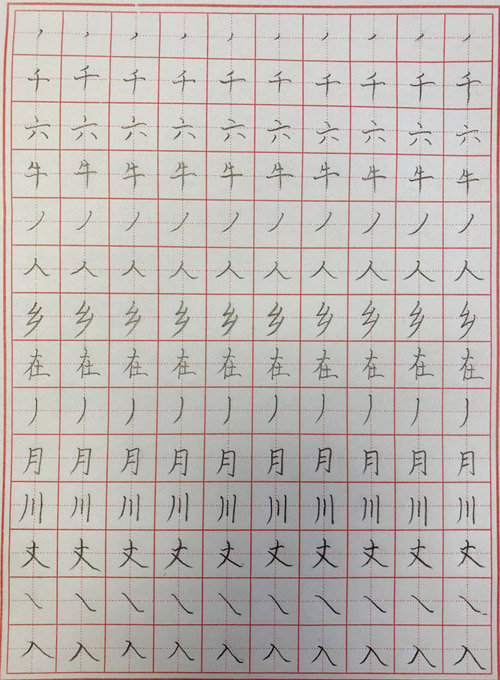 丿丿丿丿丿丿丿丿丿丿
千千千千千千千千千千
六六六六六六六六六六
牛牛牛牛牛牛牛牛牛牛
丿丿丿丿丿丿丿丿丿丿
人人人人人人人人人人
乡乡乡乡乡乡乡乡乡乡
在在在在在在在在在在
丿丿丿丿丿丿丿丿丿丿
月月月月月月月月月月
川川川川川川川川川川
丈丈丈丈丈丈丈丈丈丈
㇏㇏㇏㇏㇏㇏㇏㇏㇏㇏
入入入入入入入入入入